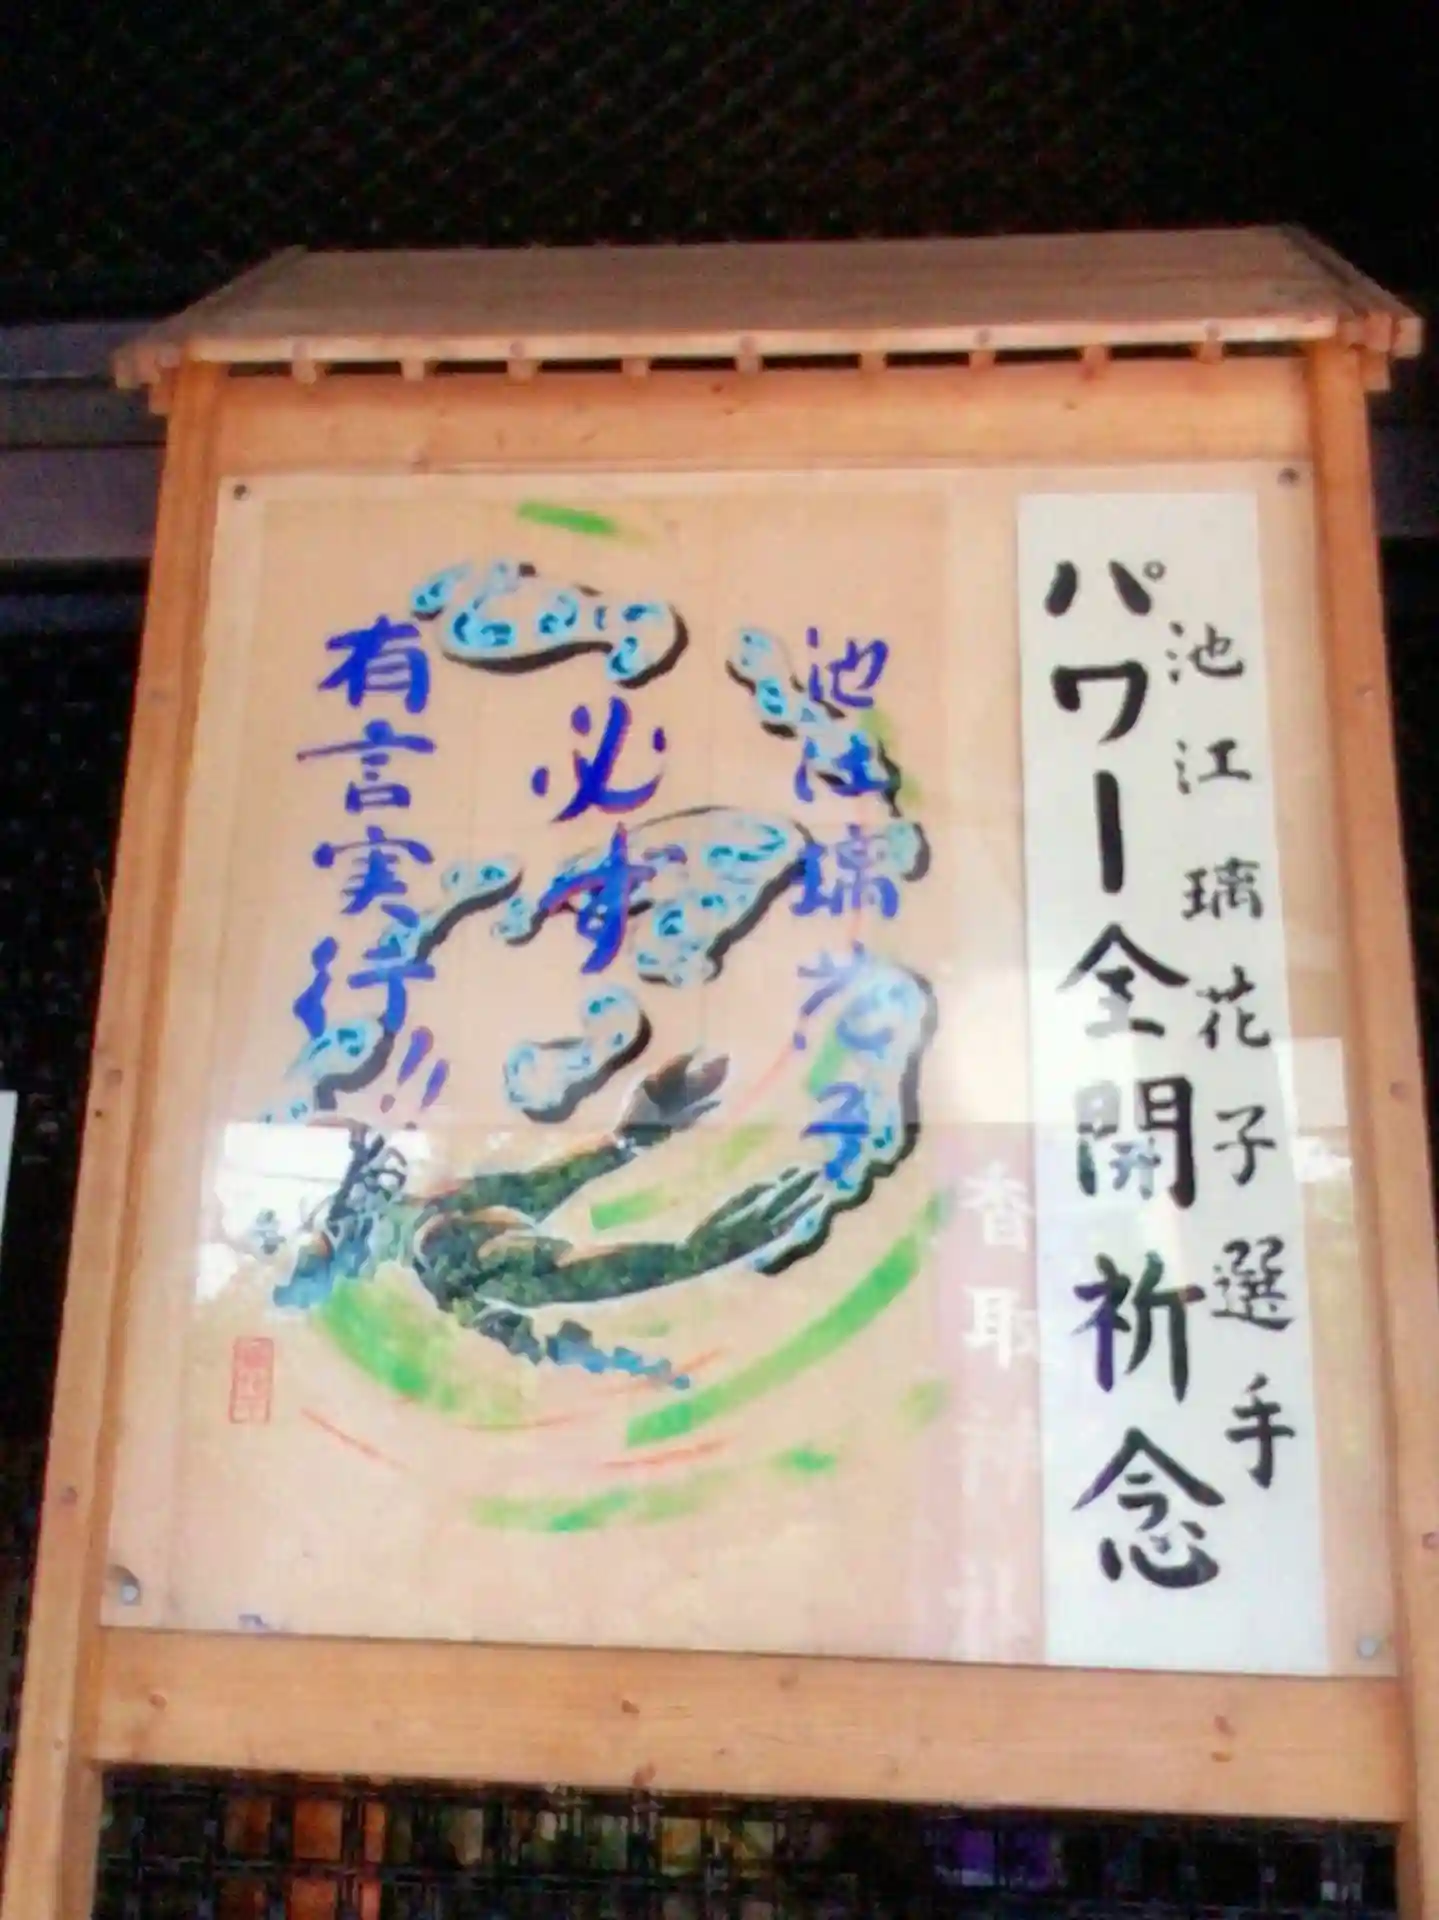 池江璃花子選手
パワー全開祈念
池江璃花子
必ず
有言実行!!
香取神社